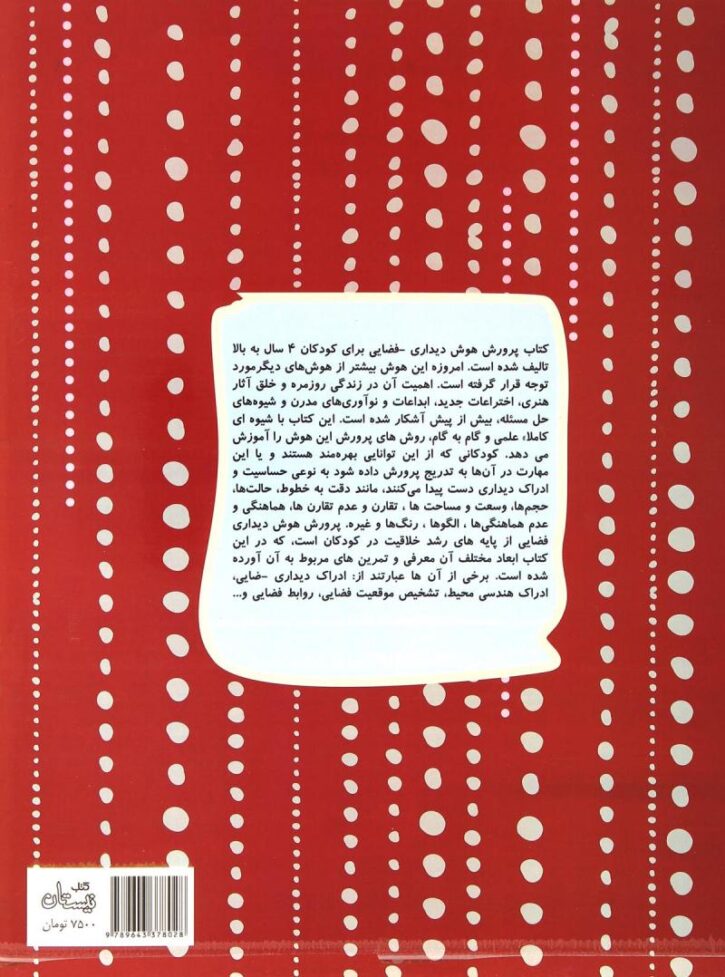 کتاب پرورش هوش دیداری -فضایی برای کودکان ۴ سال به بالا
تالیف شده است. امروزه این هوش بیشتر از هوش‌های دیگرمورد
توجه قرار گرفته است. اهمیت آن در زندگی روزمره و خلق آثار
هنری، اختراعات جدید، ابداعات و نوآوری‌های مدرن و شیوه‌های
حل مسئله، بیش از پیش آشکار شده است. این کتاب با شیوه ای
کاملا، علمی و گام به گام، روش های پرورش این هوش را آموزش
می دهد. کودکانی که از این توانایی بهره‌مند هستند و یا این
مهارت در آن‌ها به تدریج پرورش داده شود به نوعی حساسیت و
ادراک دیداری دست پیدا می‌کنند، مانند دقت به خطوط، حالت‌ها،
حجم‌ها، وسعت و مساحت ها ، تقارن و عدم تقارن ها، هماهنگی و
عدم هماهنگی‌ها ، الگوها ، رنگ‌ها و غیره. پرورش هوش دیداری
فضایی از پایه های رشد خلاقیت در کودکان است، که در این
کتاب ابعاد مختلف آن معرفی و تمرین های مربوط به آن آورده
شده است. برخی از آن ها عبارتند از: ادراک دیداری -ضایی،
ادراک هندسی محیط، تشخیص موقعیت فضایی، روابط فضایی و...
کتاب
نیستان
۷۵۰۰ تومان
9 789643 378028